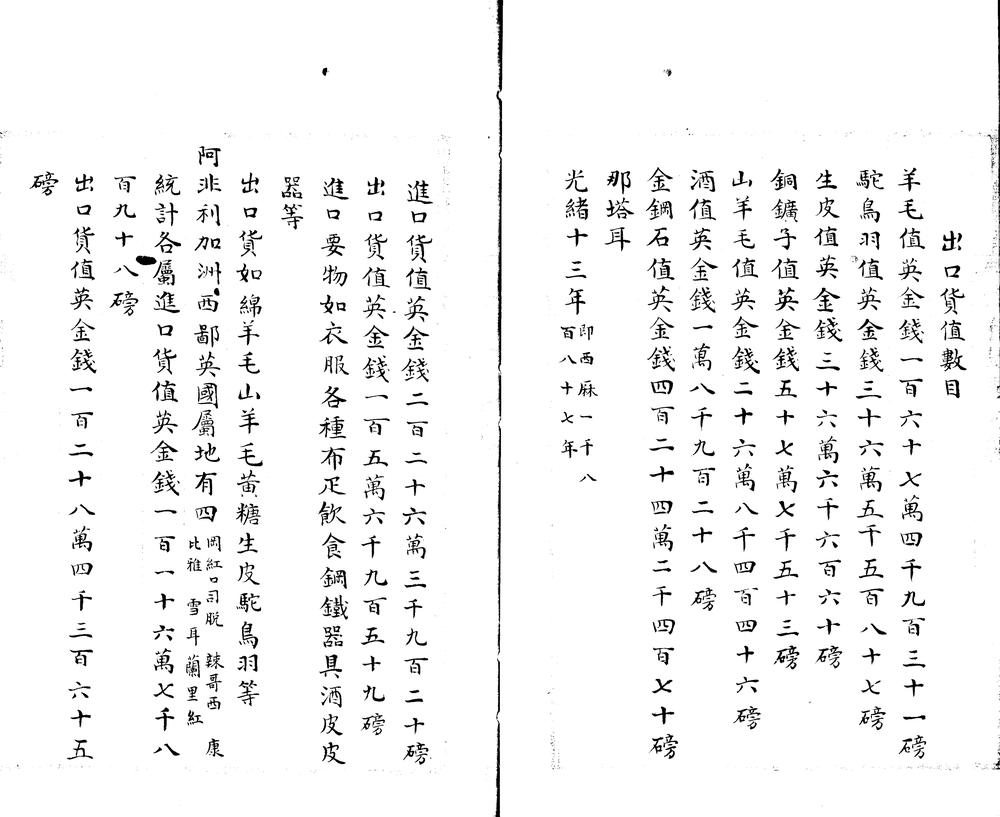 出口貨值數目
羊毛值英金錢一百六十七萬四千九百三十一磅
駝鳥羽值英金錢三十六萬五千五百八十七磅
生皮值英金錢三十六萬六千六百六十磅
銅鑛子值英金錢五十七萬七千五十三磅
山羊毛值英金錢二十六萬八千四百四十六磅
酒值英金錢一萬八千九百二十八磅
金鋼石值英金錢四百二十四萬二千四百七十磅
那塔耳
光緒十三年即西厤一千八百八十七年
進口貨值英金錢二百二十六萬三千九百二十磅
出口貨值英金錢一百五萬六千九百五十九磅
進口要物如衣服各種布疋飲食鋼鐵器具酒皮皮
器等
出口貨如綿羊毛山羊毛黃糖生皮駝鳥羽等
阿非利加洲西鄙英國屬地有四岡紅口司脫 辣哥西 康比雅 雪耳蘭里紅
統計各屬進口貨值英金錢一百一十六萬七千八
百九十八磅
出口貨值英金錢一百二十八萬四千三百六十五
磅